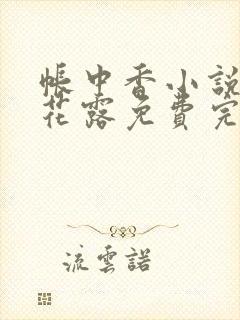 帳中香小說
花露免費完
流雲諾